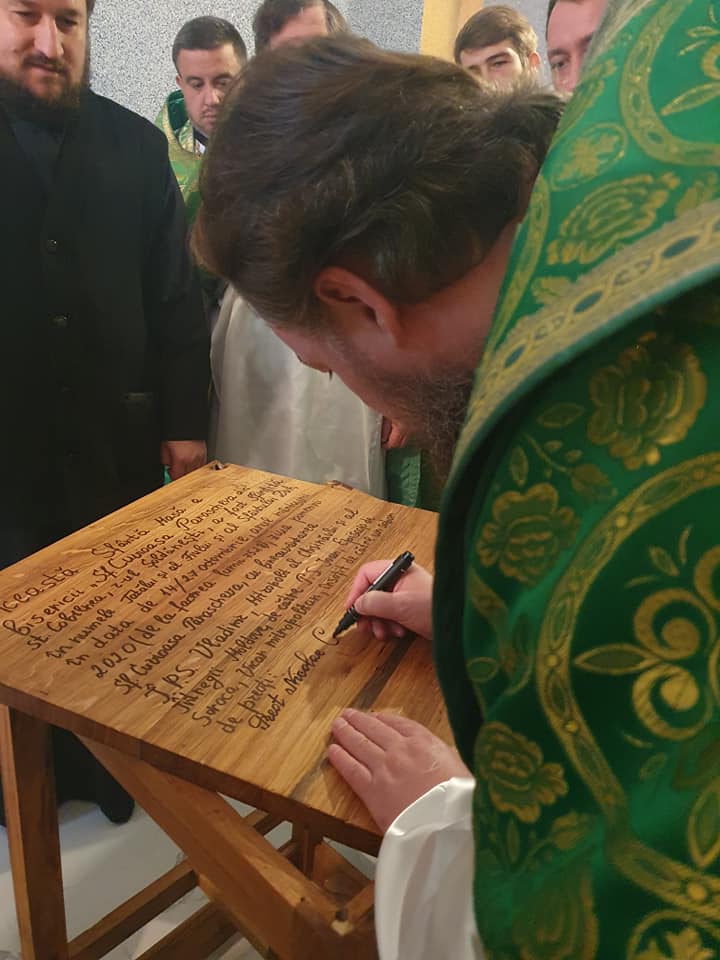 Această Sfântă Masă a
Bisericii "Sf. Cuvioasa Parascheva" din
st. Cobîlnea, r-ul Șoldănești, a fost sfințită
în numele Tatălui și al Fiului și al Sfântului Duh
în data de 14/27 octombrie, anul mântuirii
2020 (de la facerea lumii 7529), ziua pomenirii
Sf. Cuvioasa Parascheva, cu binecuvântarea
Î.P.S. Vladimir, Mitropolit al Chișinăului și al
Întregii Moldove, de către P.S. Ioan, Episcop de
Soroca, Vicar mitropolitan, fiind
de paroh:
Preot Nicolae C